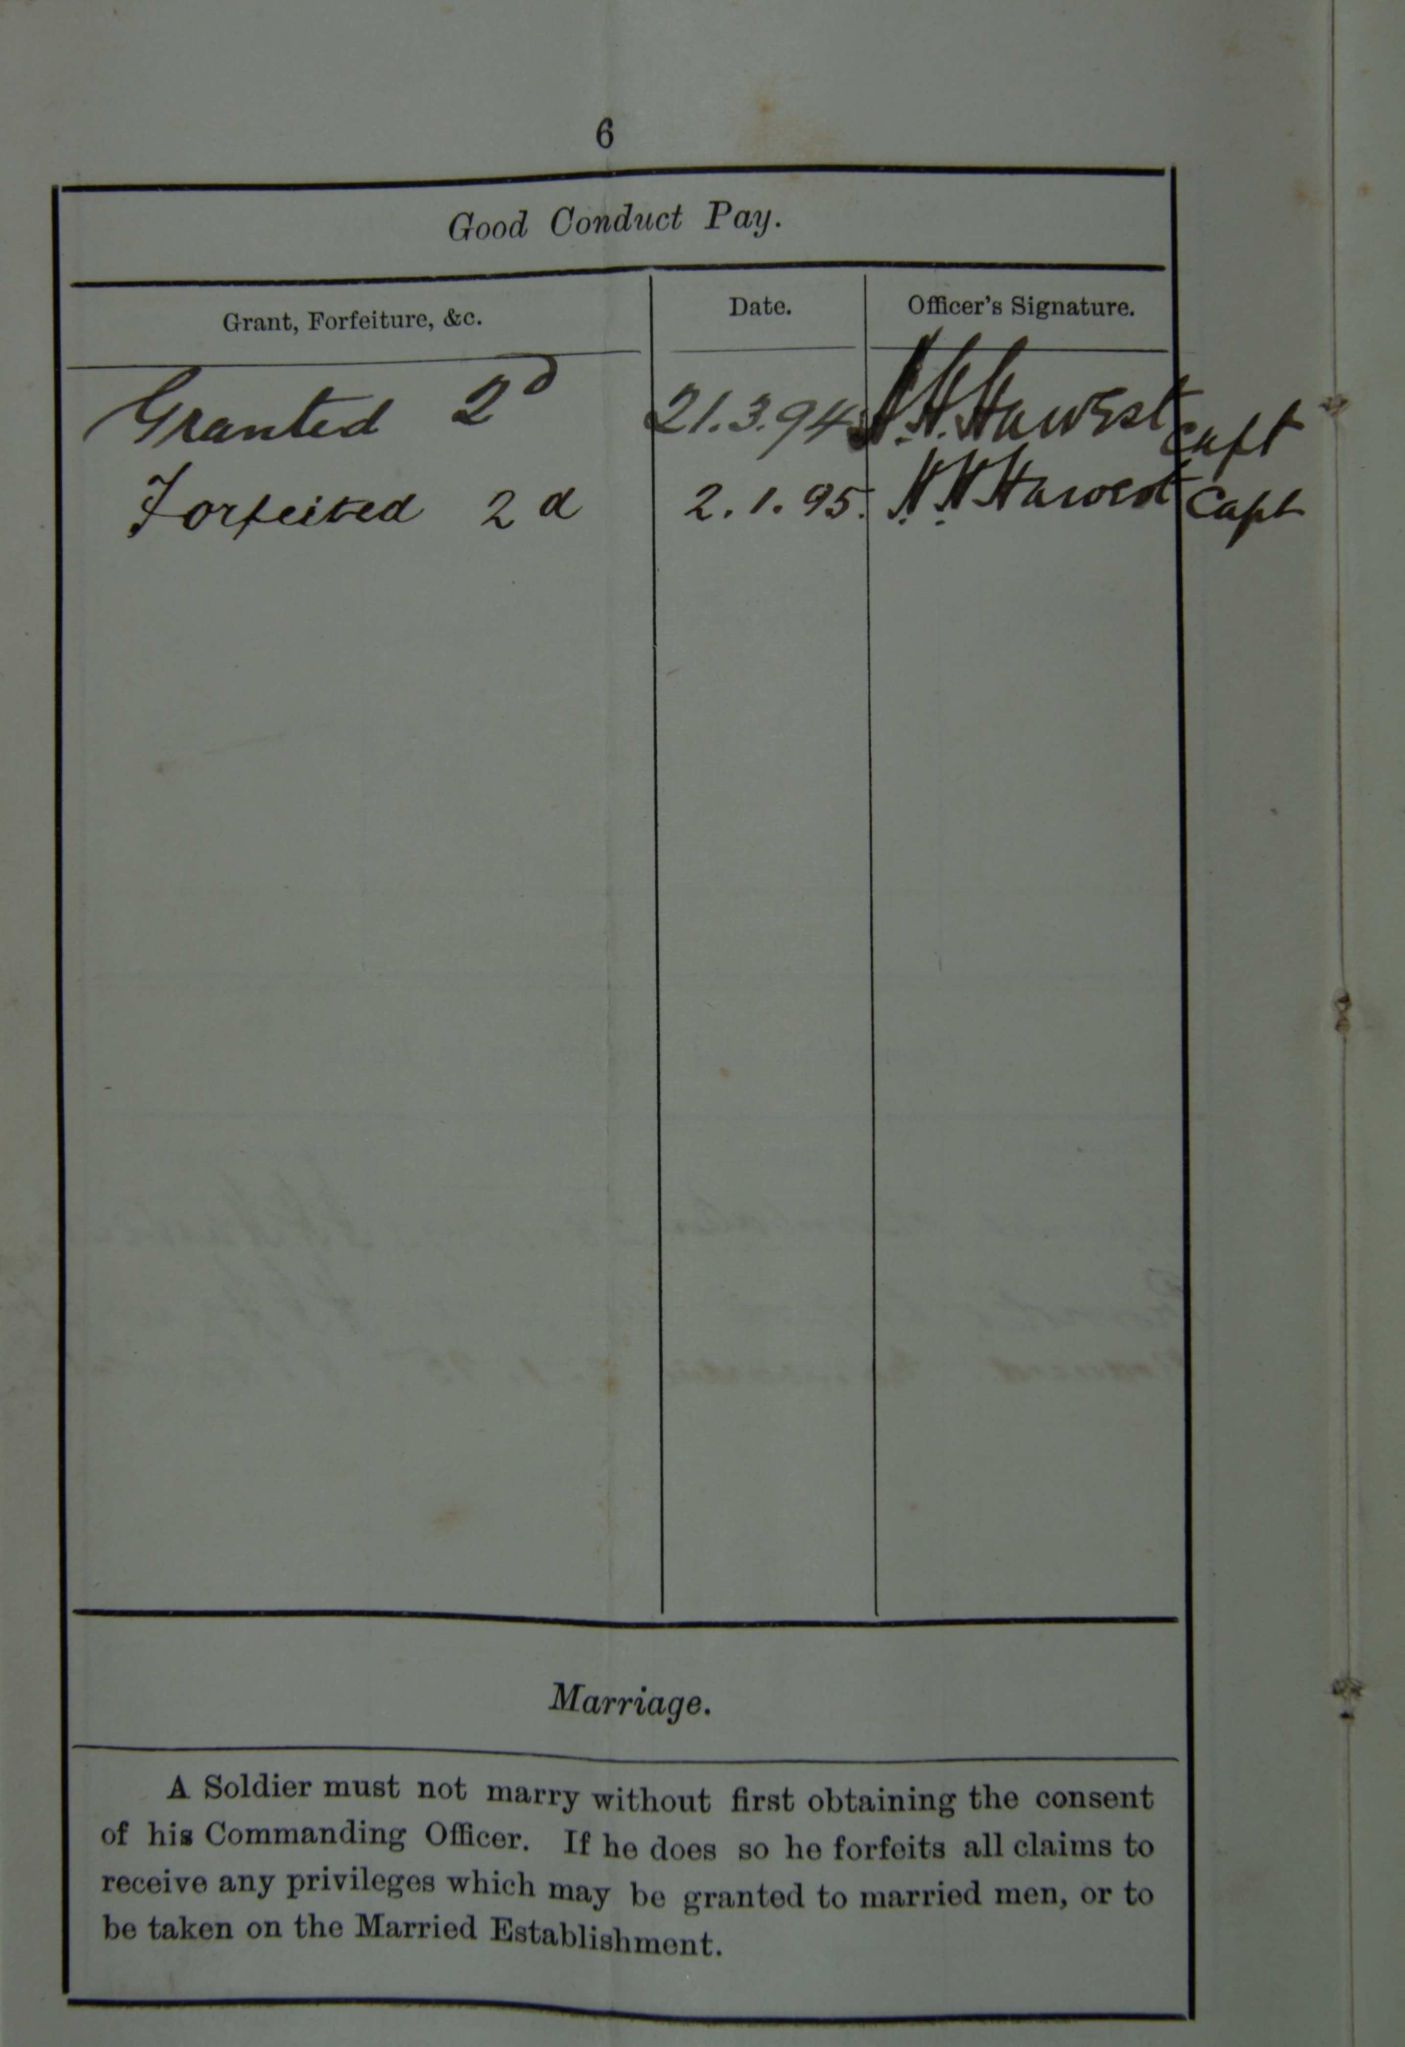 6
Good Conduct Pay.
Grant, Forfeiture, &c. Date. Officer's Signature.
Granted 2d 21.3.94 H. H. Harvest Capt
Forfeited 2d 2.1.95. H. H. Harvest Capt
Marriage.
A Soldier must not marry without first obtaining the consent
of his Commanding Officer. If he does so he forfeits all claims to
receive any privileges which may be granted to married men, or to
be taken on the Married Establishment.